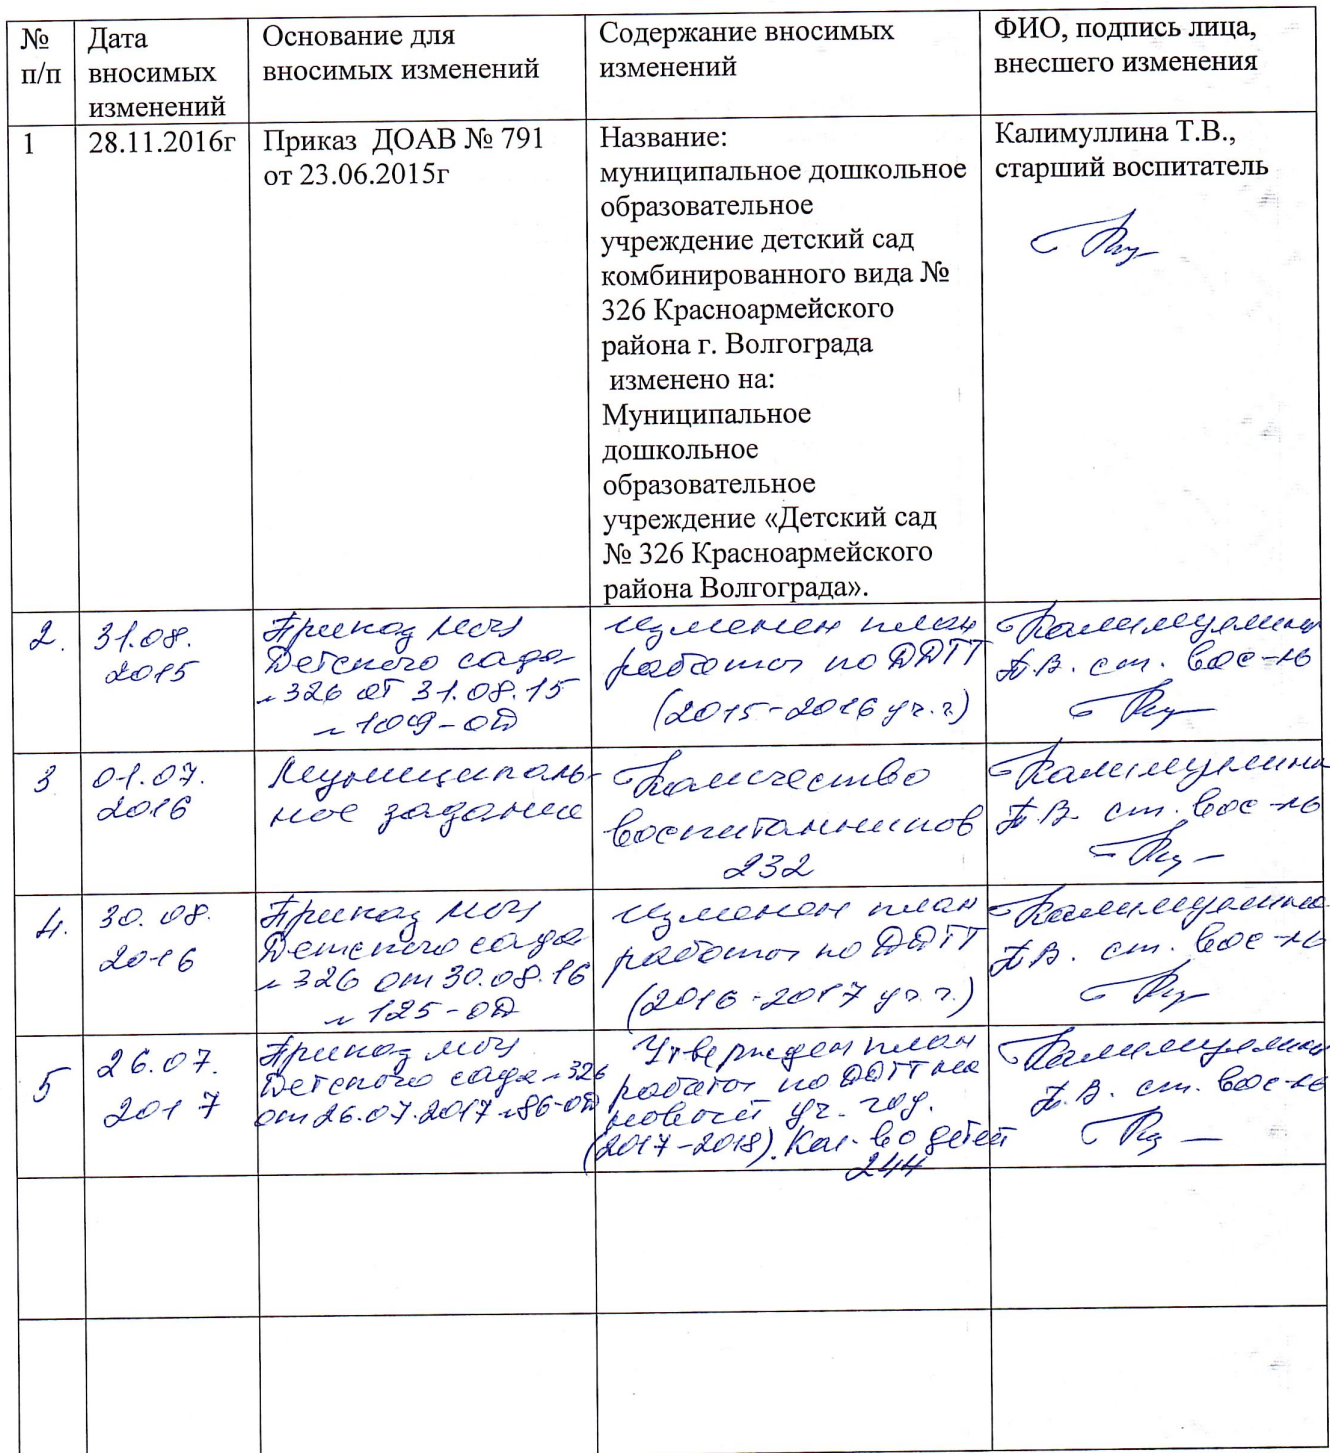 №
п/п
Дата
вносимых
изменений
Основание для
вносимых изменений
Содержание вносимых
изменений
ФИО, подпись лица,
внесшего изменения
1
28.11.2016г
Приказ ДОАВ № 791
от 23.06.2015г
Название:
муниципальное дошкольное
образовательное
учреждение детский сад
комбинированного вида №
326 Красноармейского
района г. Волгограда
изменено на:
Муниципальное
дошкольное
образовательное
учреждение «Детский сад
№ 326 Красноармейского
района Волгограда».
Калимуллина Т.В.,
старший воспитатель
2.
31.08.
2015
Приказ МОУ
Детского сада
№326 от 31.08.15
№ 109-ОД
Изменен план
работы по ДДТТ
(2015-2016 уч.г.)
Калимуллина
Т.В. ст. вос-ль
3
01.07.
2016
Муниципаль-
ное задание
Количество
воспитанников
232
Калимуллина
Т.В. ст. вос-ль
4.
30.08.
2016
Приказ МОУ
Детского сада
№326 от 30.08.16
№ 125-ОД
Изменен план
работы по ДДТТ
(2016-2017 уч.г.)
Калимуллина
Т.В. ст. вос-ль
5
26.07.
2017
Приказ МОУ
Детского сада №326
от 26.07.2017 №86-ОД
Утвержден план
работы по ДДТТ на
новый уч. год.
(2017-2018). Кол-во детей
244
Калимуллина
Т.В. ст. вос-ль